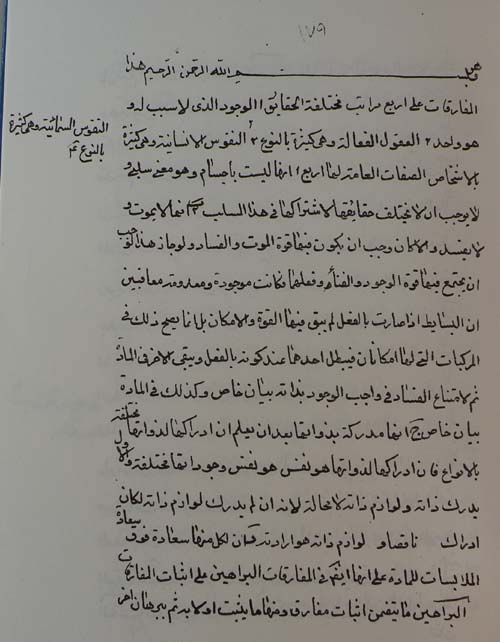 ١٧٩
بسم الله الرحمن الرحيم هذا
المفارقات على اربع مراتب مختلفة الحقايق ١ الموجود الذى لا سبب له و
هو واحد ٢ العقول الفعالة وهى كثيرة بالنوع ٣ النفوس الانسانية وهى كثيرة
بالاشخاص الصفات العامة لها اربع ١ انها ليست باجسام وهو معنى سلبى و
لا يوجب ان لا يختلف حقايقها لاشتراكها فى هذا السلب ٢ انها لا يموت و
لا يفسد والا لكان وجب ان يكون فيها قوة الموت والفساد ولو جاز هذا لوجب
ان يجتمع فيها قوة الوجود والفناء وفعلهما فكانت موجودة ومعدومة معا فبين
ان البسايط اذا صارت بالفعل لم يبق فيها القوة والامكان بل انما يصح ذلك فى
المركبات التى لها امكانان فيبطل احدهما عند كونه بالفعل ويبقى الاخر فى المادة
ثم لامتناع الفساد فى واجب الوجود بذاته بيان خاص وكذلك فى المادة
بيان خاص ج انها مدركة بذواتها بعد ان يعلم ان ادراكها لذواتها مختلفة
بالانواع فان ادراكها لذواتها هو نفس هو نفس وجوداتها مختلفة والاول
يدرك ذاته ولوازم ذاته لا محالة لانه ان لم يدرك لوازم ذاته لكان
ادراك ناقصا ولوازم ذاته هو ارادته فان لكل منها سعادة فوق سعادة
الملابسات للمادة على انها فى المفارقات البراهين على اثبات المفارقات
البراهين ما يتضمن اثبات مفارق ومنها ما يثبت اولا به ثم ببرهان اخر
النفوس السمائية وهى كثيرة
بالنوع تم